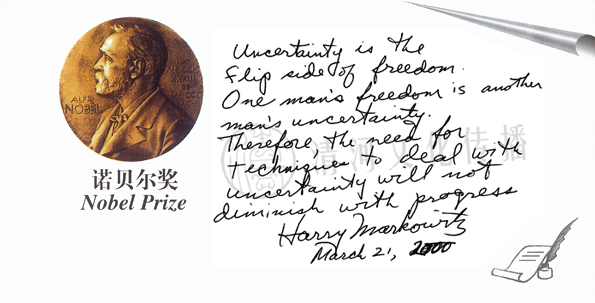 ALFR.
NOBEL
诺贝尔奖
Nobel Prize
Uncertainty is the
flip side of freedom.
One man's freedom is another
man's uncertainty.
Therefore, the need for
techniques to deal with
uncertainty will not
diminish with progress
Harry Markowitz
March 21, 2000
清河文化传播